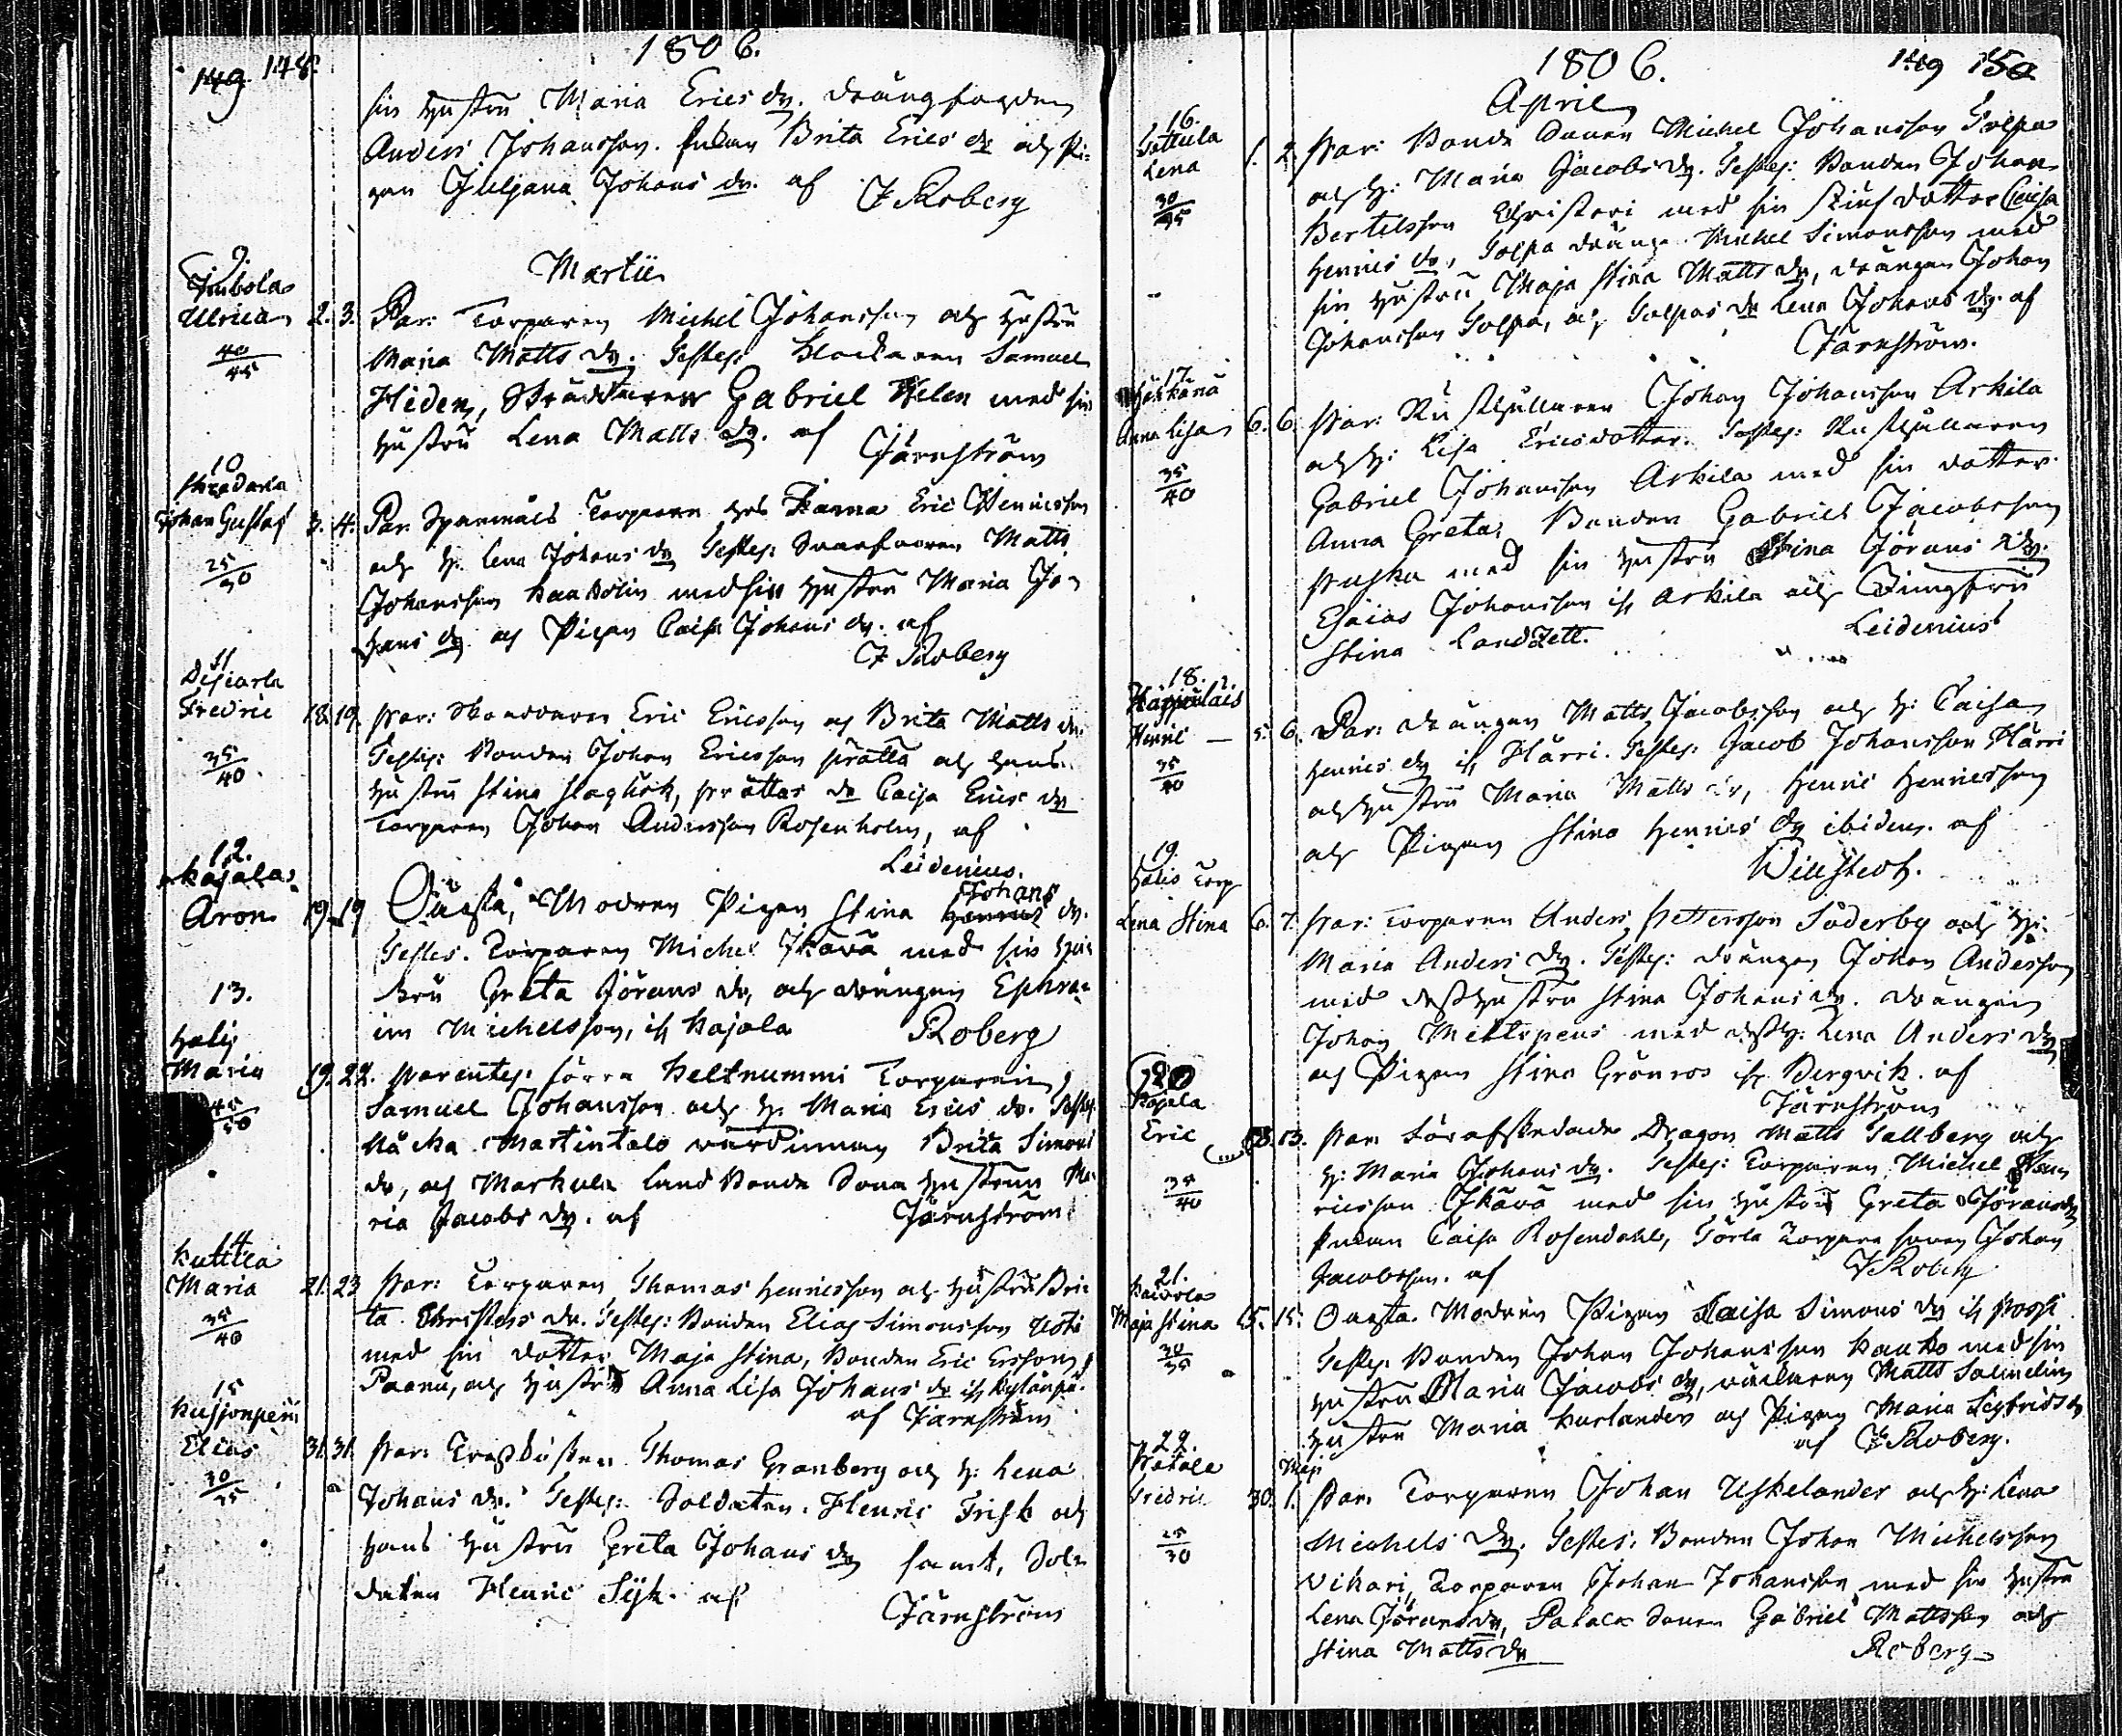 149 148.
1806.
sin hustru Maria Erics dr. drängfogden
Anders Johansson. Enkan Brita Erics dr och Pi-
gan Juljana Johans dr. af J Roberg
Martii
9.
Ulrica 2. 3. Par: Torparen Michel Johansson och hustru
40/45
Maria Matts dr. Testes: Klockaren Samuel
Hiden, Skräddaren Gabriel Welen med sin
hustru Lena Matts dr. af
Järnström
10
Johan Gustaf 3. 4. Par. Torparen Eric Henricsson
25/30
och h. Lena Johans dr Testes: Svarfvaren Matts
Johansson med sin hustru Maria Jo-
hans dr och Pigan Caisa Johans dr. af
J Roberg
11
Fredric 18. 19. Par: Eric Ericsson och Brita Matts dr.
35/40
Testes: Bonden Johan Ericsson Prätta och hans
hustru Stina Slagfisk, Prättas dr Caisa Erics dr
Torparen Johan Andersson Rosenholm, af
Leidenius.
12.
Kajala
Aron 19. 19 Oäkta, Modren Pigan Stina Johans dr.
Testes. Torparen Michel Ikävä med sin hu-
stru Greta Jörans dr, och drängen Ephra-
im Michelsson, if. Kajala Roberg
13.
Maria 19. 22. Parentes: förra Keltnummi Torparen,
45/50
Samuel Johansson och h. Maria Erics dr. Testes
Martintalo värdinnan Brita Simons
dr, och Markula Landbonde Sona hustrun Ma-
ria Jacobs dr. af Järnström
14
Kuttila
Maria 21. 23 Par: Torparen Thomas Henricsson och hustru Bri-
35/40
ta Christers dr. Testes: Bonden Elias Simonsson
med sin dotter Maja Stina, Bonden Eric Ersson
Paanu, och hustru Anna Lisa Johans dr if
af Järnström
15
Elias 31. 31. Par: Thomas Granberg och h: Lena
30/35
Johans dr. Testes: Soldaten Henric Frisk och
hans hustru Greta Johans dr samt, Sol-
daten Henric Sijk. af
Järnström
1806. 149 150
April
16.
Lena 1. 2. Par: Bonde Sonen Michel Johansson Solpa
30/35
och h: Maria Jacobs dr. Testes: Bonden Johan
Bertelsson med sin Stiufdotter Caisa
Henrics dr, Solpa dräng Michel Simonsson med
sin hustru Maja Stina Matts dr, drängen Johan
Johansson Solpa, och Solpas dr Lena Johans dr. af
Järnström.
17.
Anna Lisa 6. 6. Par: Rusthållaren Johan Johansson Arkila
35/40
och h: Lisa Ericsdotter. Testes: Rusthållaren
Gabriel Johansson Arkila med sin dotter
Anna Greta, Bonden Gabriel Jacobsson
med sin hustru Stina Jörans dr.
Esaias Johansson if Arkila och Jungfru
Stina Landzett. Leidenius
18.
Henric 5. 6. Par: drängen Matts Jacobsson och h: Caisa
35/40
Henrics dr if Härri. Testes: Jacob Johansson Härri
och hustru Maria Matts dr, Henric Henricsson
och Pigan Stina Henrics dr ibidem. af
Willstedt.
19.
Lena Stina 6. 7. Par: Torparen Anders Pettersson Söderby och h:
Maria Anders dr. Testes: drängen Johan Andersson
med dess hustru Stina Johans dr. drängen
Johan med dess h: Lena Anders dr
och Pigan Stina Grönros if Bergvik. af
Järnström
20
Eric 13. Par: förafskedade Dragon Matts Sallberg och
35/40
h: Maria Johans dr. Testes: Torparen Michel Hen-
ricsson Ikävä med sin hustru Greta Jörans dr
Enkan Caisa Rosendahl, Torpare sonen Johan
Jacobsson. af J Roberg
21.
Maja Stina 15. 15. Oägta. Modren Pigan Caisa Simons dr if
30/35
Testes Bonden Johan Johansson Kauko med sin
hustru Maria Jacobs dr, Matts Salmelin
hustru Maria Karlander och Pigan Maria Sigfrids dr
af J Roberg.
22. Maji
Fredric 30. 1. Par. Torparen Johan Uskelander och h: Lena
25/30
Michels dr. Testes: Bonden Johan Michelsson
Vihari, Torparen Johan Johansson med sin hustru
Lena Jörans dr, Sonen Gabriel Mattsson och
Stina Matts dr Roberg